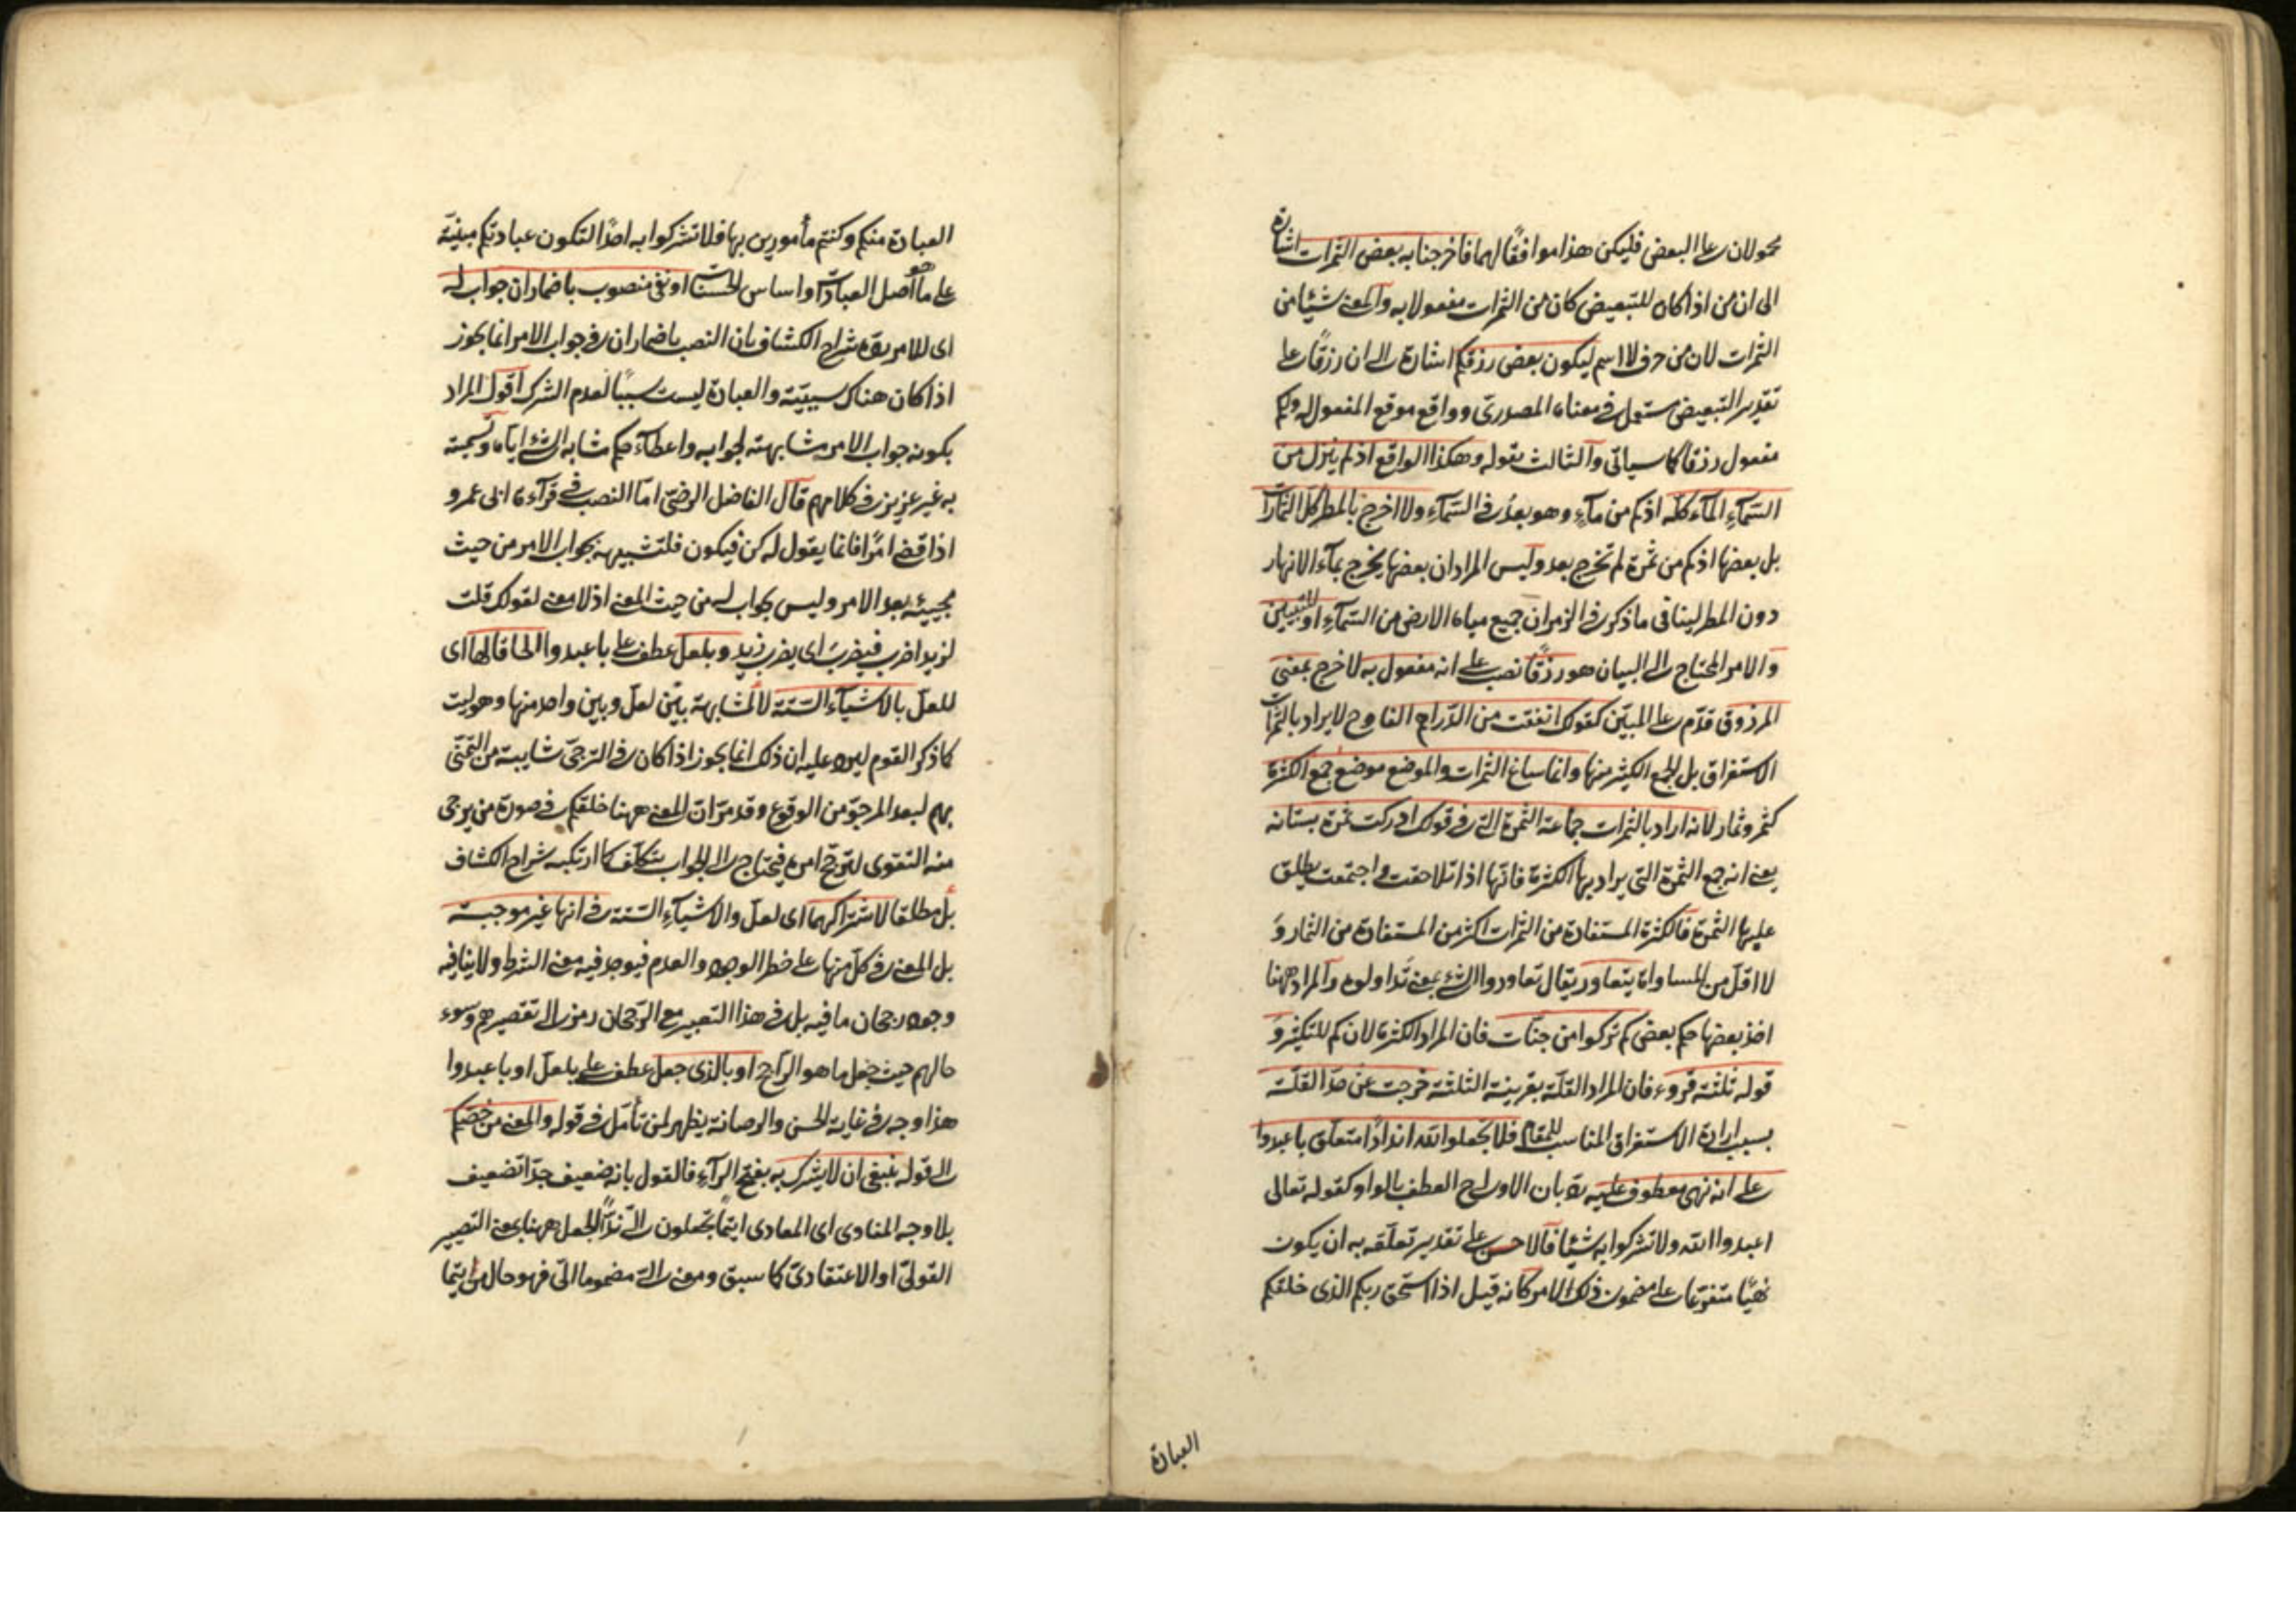 محمولان على البعض فليكن هذا موافقًا لهما فاخرجنا به بعض الثمرات اشارة
الى ان من اذا كان للتبعيض كان من الثمرات مفعولا به والمعنى شيئا من
الثمرات لان من حرف لا اسم ليكون بعض رزقكم اشارة الى ان رزقًا على
تقدير التبعيض مستعمل فى معناه المصدرى وواقع موقع المفعول له ولكم
مفعول رزقا كما سيأتى والثالث بقوله وهكذا الواقع اذ لم ينزل من
السّمآء المآء كلّه اذ كم من مآء وهو بعدُ فى السّمآء ولا اخرج بالمطر كلّ الثمرات
بل بعضها اذ كم من ثمرة لم تخرج بعد وليس المراد ان بعضها يخرج بمآء الانهار
دون المطر لينافى ما ذكر فى الزمر ان جميع مياه الارض من السّمآء او للتبيين
والامر المحتاج الى البيان هو رزقًا نصب على انه مفعول به لاخرج بمعنى
المرزوق قدّم على المبيّن كقولك انفقت من الدّراهم الفا وح لا يراد بالثمرات
الاستغراق بل الجمع الكثير منها وانما ساغ الثمرات والموضع موضع جمع الكثرة
كثمر وثمار لانه اراد بالثمرات جماعة الثمرة التى فى قولك ادركت ثمرة بستانه
يعنى انه جمع الثمرة التى يراد بها الكثرة فانّها اذا تلاحقت واجتمعت يطلق
عليها الثمرة فالكثرة المستفادة من الثمرات اكثر من المستفادة من الثمار و
لا اقلّ من المساواة يتعاور يقال تعاوروا الشئ بمعنى تداولوه والمراد ههنا
اخذ بعضها حكم بعض كم تركوا من جنّات فان المراد الكثرة لان كم للتكثير و
قوله ثلثة قروء فان المراد القلّة بقرينة الثلثة خرجت عن حدّ القلّة
بسبب ارادة الاستغراق المناسب للمقام فلا تجعلوا لله اندادًا متعلق باعبدوا
على انه نهى معطوف عليه ردّ بان الاولى ح العطف بالواو كقوله تعالى
اعبدوا الله ولا تشركوا به شيئا فالاحسن على تقدير تعلّقه به ان يكون
نهيًا متفرعا على مضمون ذلك الامر كانه قيل اذا استحق ربكم الذى خلقكم
العبادة
العبادة منكم وكنتم مأمورين بها فلا تشركوا به احدًا لتكون عبادتكم مبنيّة
على ما هو اصل العبادات واساس الحسنات او نفى منصوب باضمار ان جواب له
اى للامر ردّه شراح الكشاف بان النصب باضمار ان فى جواب الامر انما يجوز
اذا كان هناك سببيّة والعبادة ليست سببًا لعدم الشرك اقول المراد
بكونه جواب الامر مشابهته لجوابه واعطآء حكم مشابه الشئ اياه وتسميته
به غير عزيز فى كلامهم قال الفاضل الرضىّ امّا النصب فى قرآءة ابى عمرو
اذا قضى امرًا فانما يقول له كن فيكون فلتشبيهه بجواب الامر من حيث
مجيئه بعد الامر وليس بجواب له من حيث المعنى اذ لا معنى لقولك قلت
لزيد اضرب فيضرب اى يضرب زيد وبلعلّ عطف على باعبدوا الحاقا لها اى
للعلّ بالاشيآء السّتة لا لمشابهة بيّن لعلّ وبين واحد منها وهو ليت
كما ذكر القوم ليرد عليه ان ذلك انما يجوز اذا كان فى الترجّى شايبة من التمنّى
بهم لبعد المرجوّ من الوقوع وقد مرّ ان المعنى ههنا خلقكم فى صورة من يرجى
منه التقوى لترجّح امره فيحتاج الى الجواب بتكلّف كما ارتكبه شراح الكشاف
بل مطلقا لاشتراكهما اى لعلّ والاشيآء السّتة فى انها غير موجبة
بل المعنى فى كلّ منها على خطر الوجود والعدم فيوجد فيه معنى الشرط ولا ينافيه
وجود رجحان ما فيه بل فى هذا التعبير مع الرّجحان رمز الى تقصيرهم وسوء
حالهم حيث جعل ما هو الرّاجح او بالذى جعل عطف على بلعلّ او باعبدوا
هذا وجه فى غاية الحسن والرصانة يظهر لمن تأمّل فى قوله والمعنى من خصّكم
الى قوله ينبغى ان لا يشرك به بفتح الرّآء فالقول بانه ضعيف جدّا تضعيف
بلا وجه المناوى اى المعادى ايتما تجعلون الىّ ندّاً الجعل ههنا بمعنى التصيير
القولىّ او الاعتقادىّ كما سبق ومعنى الىّ مضموما الىّ فهو حال من ايتما